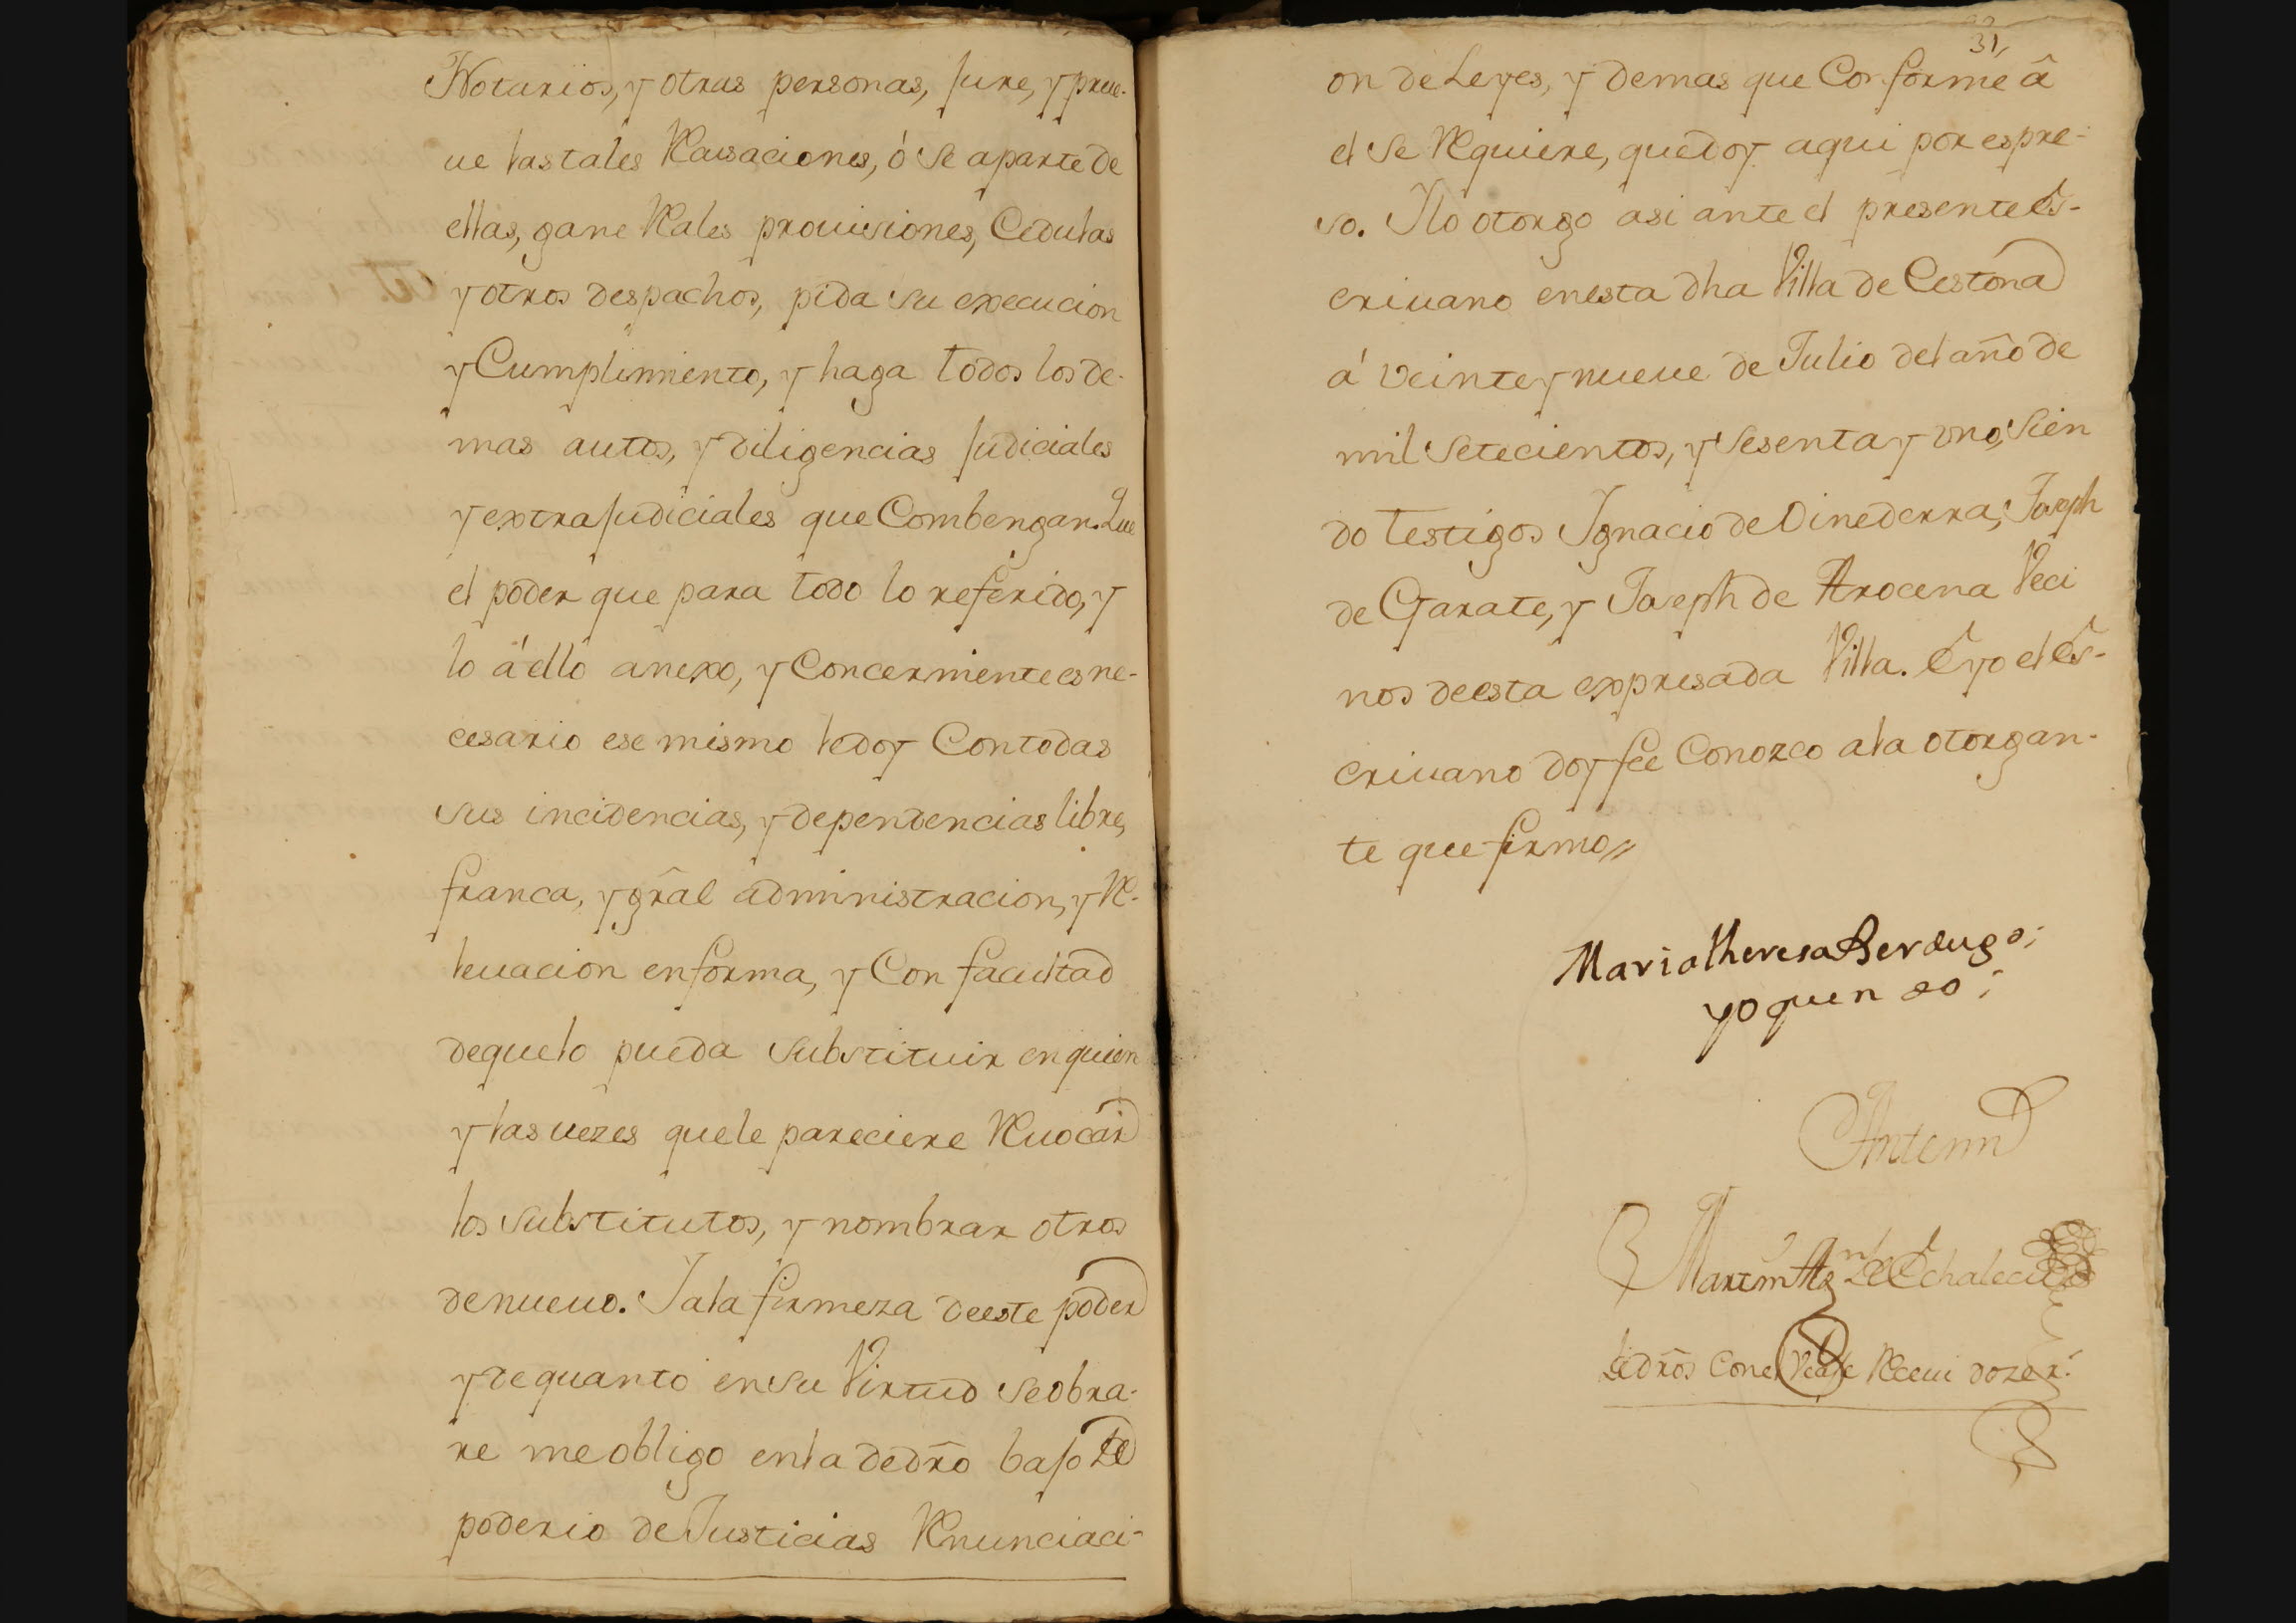 Notarios, y otras personas, jure, y prue-
ue las tales Recusaciones, ó se aparte de
ellas, gane Reales prouisiones, Cedulas
y otros despachos, pida su execucion
y Cumplimiento, y haga todos los de-
mas autos, y diligencias judiciales
y extrajudiciales que Combengan. Que
el poder que para todo lo referido, y
lo á ello anexo, y Concerniente es ne-
cesario ese mismo le doy Con todas
sus incidencias, y dependencias libre,
franca, y gral administracion, y Re-
leuacion en forma, y Con facultad
de que lo pueda substituir en quien
y las uezes que le pareciere Reuocar
los substitutos, y nombrar otros
de nueuo. I a la firmeza de este poder
y de quanto en su Virtud se obra-
re me obligo en la de dro bajo de
poderio de Justicias Renunciaci-
31,
on de Leyes, y demas que Conforme â
el se Requiere, que doy aqui por espre-
so. I lo otorgo asi ante el presente Es-
criuano en esta dha Villa de Cestona
á veinte y nueue de Julio del año de
mil setecientos, y sesenta y uno, sien
do testigos Ignacio de Oinederra, Joseph
de Garate, y Joseph de Arocena Veci
nos de esta expresada Villa. E yo el Es-
criuano doy fee Conozco a la otorgan-
te que firmo//
Maria theresa Berdugo;
yo quen do;
Ante mi
Martin de Echalecu
de dros Con el Recui doze r.